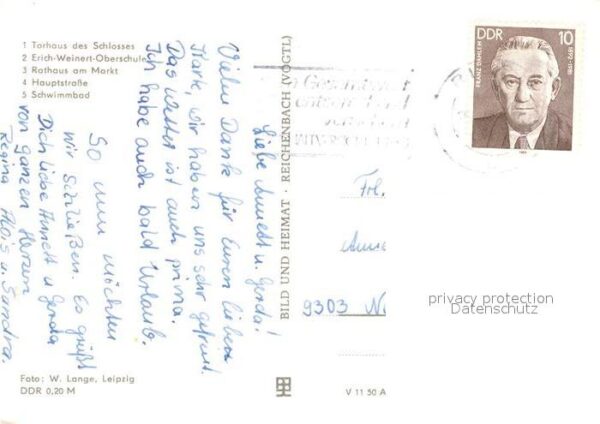 1 Torhaus des Schlosses
2 Erich-Weinert-Oberschule
3 Rathaus am Markt
4 Hauptstraße
5 Schwimmbad
Liebe Annett u. Gerda!
Vielen Dank für Euren lieben
Karte, wir haben uns sehr gefreut.
Das Wetter ist auch prima.
Ich habe auch bald Urlaub.
So nun möchten
wir schließen. Es grüßt
Dich liebe Annett u Gerda
von ganzen Herzen
Regina Alois u. Sandra.
Foto: W. Lange, Leipzig
DDR 0,20 M
BILD UND HEIMAT · REICHENBACH (VOGTL)
V 11 50 A
DDR
10
FRANZ DAHLEM
1892-1981
Frl.
9303
privacy protection
Datenschutz